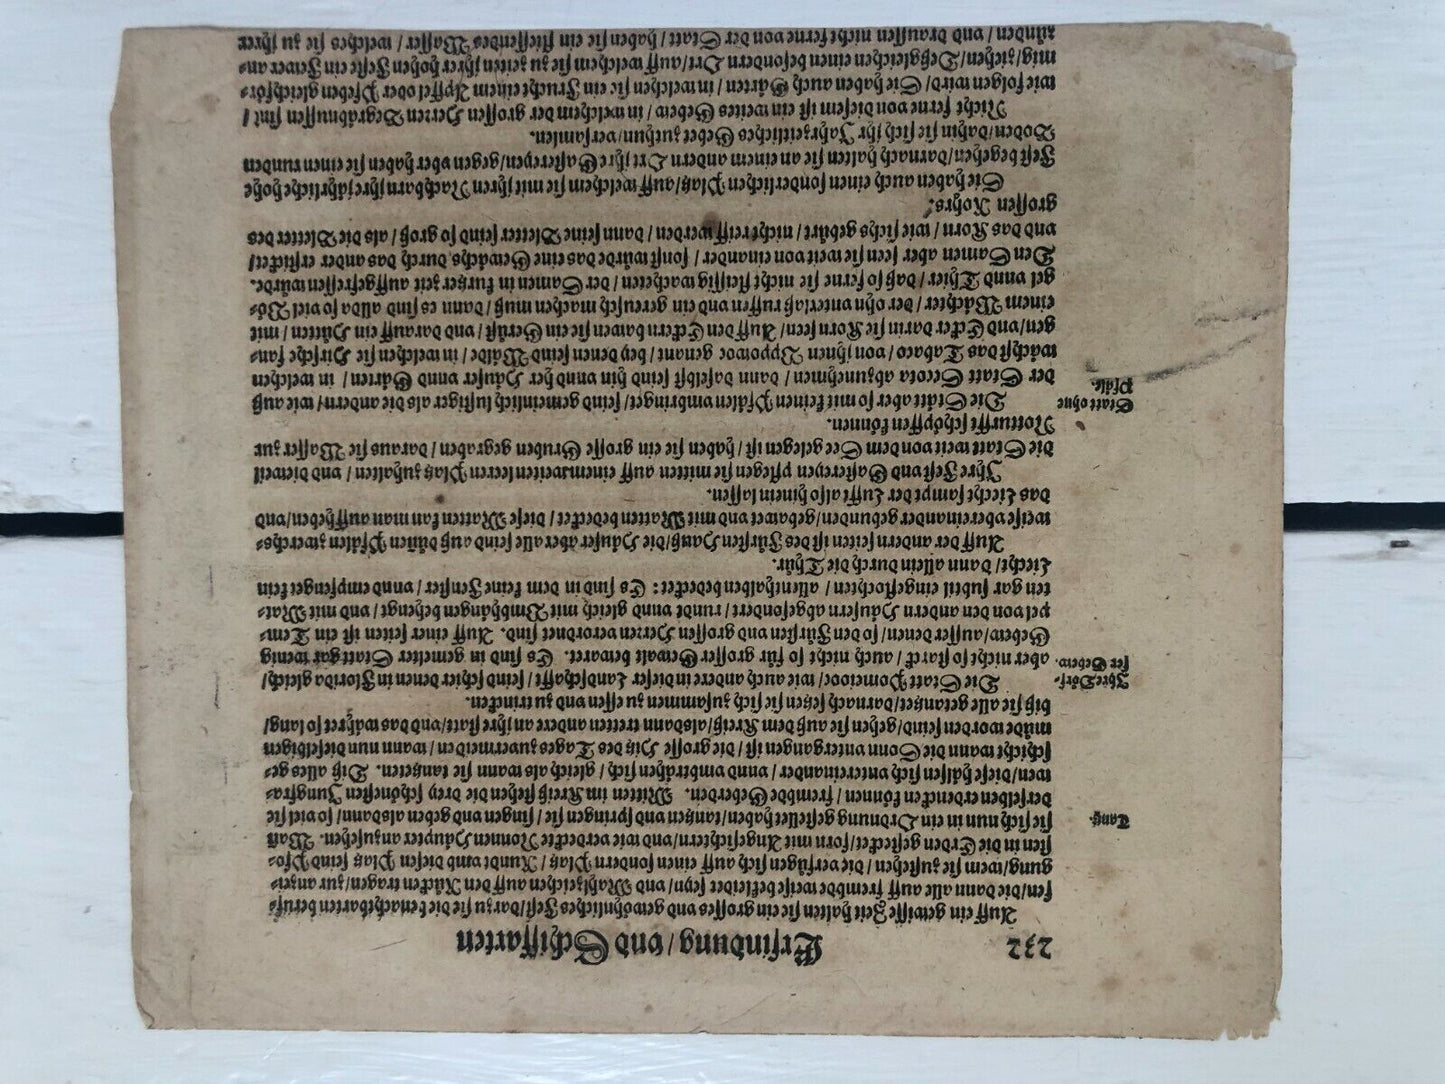 232 Erfindung/ vnd Schiffarten
Auff ein gewisse Zeit halten sie ein grosses vnd gewöhnliches Fest/ darzu sie die benachbarten beruf-
fen/ die dann alle auff frembde weise bekleidet seyn/ vnd Mahlzeichen auff den Rücken tragen/ zur anzei-
gung/ wem sie zustehen/ die verfügen sich auff einen sondern Platz/ Rundt vmb diesen Platz seind Pfo-
sten in die Erden gestecket/ forn mit Angesichtern/ vnd wie verdeckte Nonnen Häupter anzusehen. Wañ
sie sich nun in ein Ordnung gestellet haben/ tantzen vnd springen sie/ singen vnd geben als dann/ so viel sie
Tantz.
derselben erdencken können/ frembde Geberden. Mitten im Kreiß stehen die drey schönesten Jungfra-
wen/ diese hälsen sich vntereinander/ vnnd vmbträhen sich/ gleich als wann sie tantzten. Diß alles ge-
schicht wann die Sonn vntergangen ist/ die grosse Hitz des Tages zuvermeiden/ wann nun dieselbigen
müde worden seind/ gehen sie auß dem Kreiß/ als dann tretten andere an ihre statt/ vnd das wäret so lang/
biß sie alle getantzet/ darnach setzen sie sich zusammen zu essen vnd zu trincken.
Die Statt Pomeiooc/ wie auch andere in dieser Landschafft/ seind schier denen in Florida gleich/
Ihre Dörf-
fer Gebew.
aber nicht so starck/ auch nicht so für grosser Gewalt bewaret. Es sind in gemelter Statt gar wenig
Gebew/ ausser denen/ so den Fürsten vnd grossen Herren verordnet sind. Auff einer seiten ist ein Tem-
pel von den andern Häusern abgesondert/ rundt vnnd gleich mit Vmbhängen behengt/ vnd mit Mat-
ten gar subtil eingeflochten/ allenthalben bedecket: Es sind in dem keine Fenster/ vnnd empfenget kein
Liecht/ dann allein durch die Thür.
Auff der andern seiten ist des Fürsten Hauß/ die Häuser aber alle seind auß dünen Pfälen zwerchs-
weise vber einander gebunden/ gebawet vnd mit Matten bedecket/ diese Matten kan man auffheben/ vnd
das Liecht sampt der Lufft also hinein lassen.
Ihre Fest vnd Gastereyen pflegen sie mitten auff einem weiten leeren Platz zuhalten/ vnd dieweil
die Statt weit von dem See gelegen ist/ haben sie ein grosse Gruben gegraben/ daraus sie Wasser zur
Notturfft schöpffen können.
Die Stätt aber so mit keinen Pfälen vmbringet/ seind gemeinlich lustiger als die andern/ wie auß
Statt ohne
Pfäle.
der Statt Secota abzunehmen/ dann daselbst seind hin vnnd her Häuser vnnd Gärten/ in welchen
wächst das Tabaco/ von ihnen Vppowoc genant/ bey denen seind Wälde/ in welchen sie Hirsche fan-
gen/ vnd Ecker darin sie Korn seen/ Auff den Eckern bawen sie ein Gerüst/ vnd darauff ein Hütten/ mit
einem Wächter/ der ohn vnterlaß ruffen vnd ein gereusch machen muß/ dann es sind allda so viel Vö-
gel vnnd Thier/ daß/ so ferne sie nicht fleissig wacheten/ der Samen in kurtzer zeit auffgefressen würde.
Den Samen aber seen sie weit von einander/ sonst würde das eine Gewächs durch das ander ersticket/
vnd das Korn/ wie sichs gebürt/ nicht reiff werden/ dann seine Bletter seind so groß/ als die Bletter des
grossen Rohrs.
Sie haben auch einen sonderlichen Platz/ auff welchem sie mit ihren Nachbarn ihre jährliche hohe
Fest begehen/ darnach halten sie an einem andern Ort ihre Gastereyen/ gegen vber haben sie einen runden
Boden/ dahin sie sich/ ihr Jahrzeitliches Gebet zuthun/ versamlen.
Nicht ferne von diesem ist ein weites Gebew/ in welchem der grossen Herren Begräbnussen sint/
wie folgen wird/ Sie haben auch Gärten/ in welchen sie ein Frucht einem Apffel oder Pfeben gleichför-
mig/ ziehen/ Desgleichen einen besondern Ort/ auff welchem sie zu zeiten ihrer hohen Feste ein Fewer an-
zünden/ vnd draussen nicht ferne von der Statt/ haben sie ein fliessendes Wasser/ welches sie zu ihrer